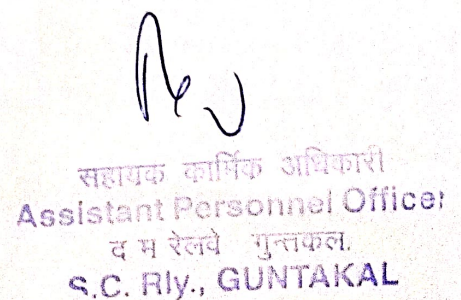 सहायक कार्मिक अधिकारी
Assistant Personnel Officer
द म रेलवे गुन्तकल.
S.C. Rly., GUNTAKAL